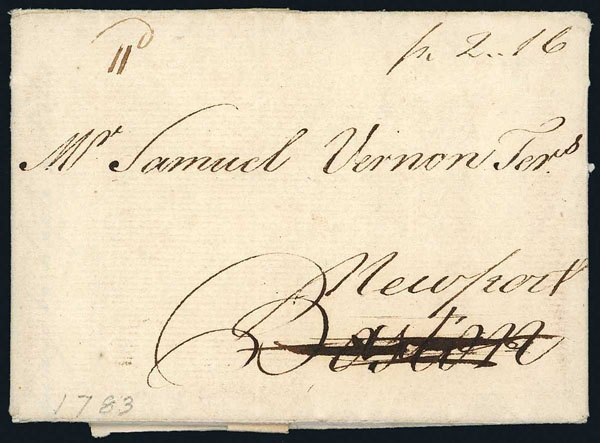 11d
pr. 2..16
Mr Samuel Vernon Ters
Newport
Boston
1783